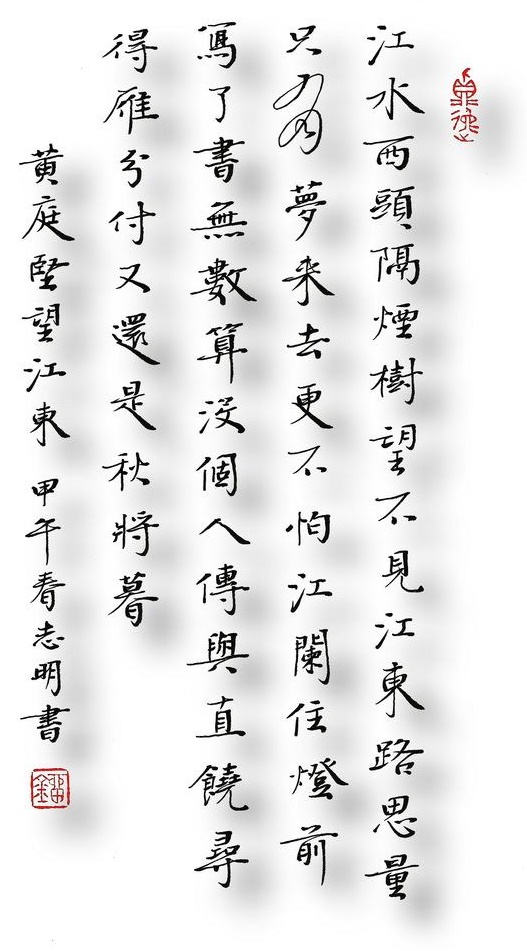 江水西頭隔煙樹望不見江東路思量
只有夢来去更不怕江闌住燈前
寫了書無數算沒個人傳與直饒尋
得雁分付又還是秋將暮
黄庭堅望江東 甲午春志明書